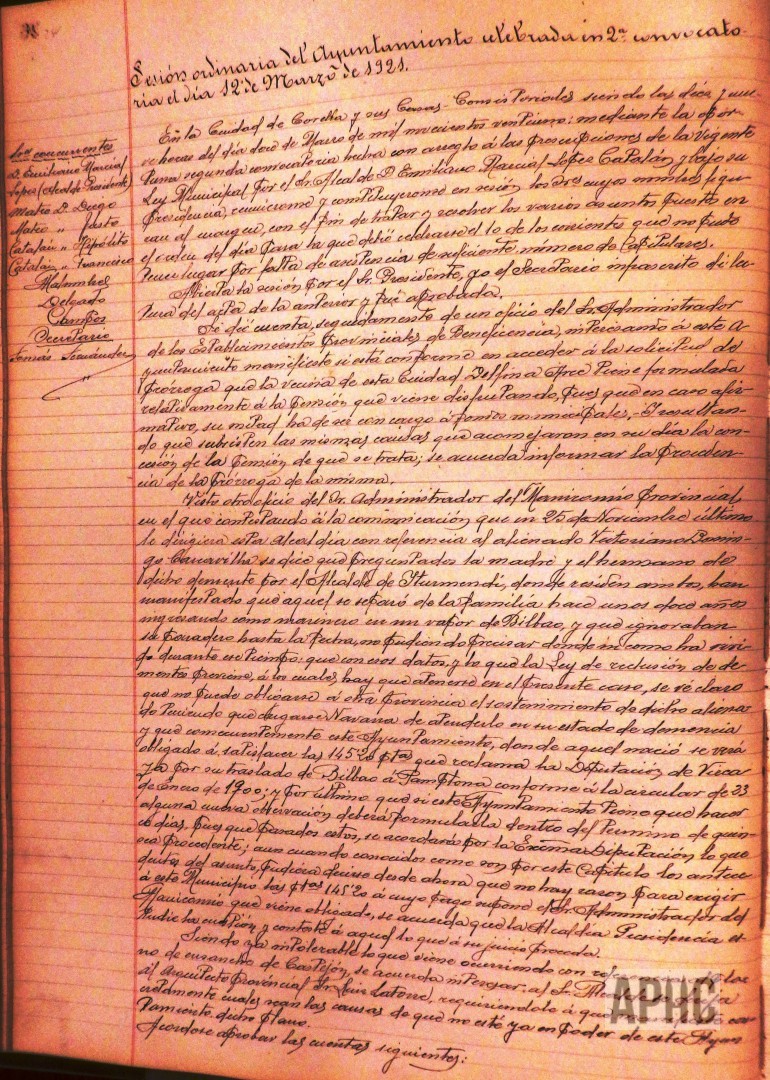 Sesión ordinaria del Ayuntamiento celebrada en 2ª convocato-
ria el día 12 de Marzo de 1921.
Sres concurrentes
D. Emiliano Marcial
Lopez (Alcalde Presidente)
Mateo D. Diego
Mateo " Justo
Catalán " Hipólito
Catalán " Francisco
Malumbres
Delgado
Campos
Secretario
Tomás Fernández
En la Ciudad de Corella y sus Casas-Consistoriales siendo las diez y me-
dia horas del día doce de Marzo de mil novecientos veintiuno: mediante la opor-
tuna segunda convocatoria hecha con arreglo á las prescripciones de la vigente
Ley Municipal por el Sr. Alcalde D. Emiliano Marcial Lopez Catalán y bajo su
Presidencia, reunieronse y constituyeronse en sesión los Sres cuyos nombres se que
al margen, con el fin de tratar y resolver los varios asuntos puestos en
el orden del día para la que debió celebrarse el 10 de los corrientes que no pudo
tener lugar por falta de asistencia de suficiente número de Capitulares.
Abierta la sesión por el Sr. Presidente, yo el Secretario infrascrito di lec-
tura del acta de la anterior y fué aprobada.
Se dió cuenta, seguidamente de un oficio del Sr. Administrador
de los Establecimientos Provinciales de Beneficencia, interesando á este A-
yuntamiento manifieste si está conforme en acceder á la solicitud de
prórroga que la vecina de esta Ciudad Delfina Arce tiene formulada
relativamente á la pensión que viene disfrutando, pues que en caso afir-
mativo, su mitad ha de ser con cargo á fondos municipales,- Y resultan-
do que subsisten las mismas causas que aconsejaron en su día la con-
cesión de la pensión de que se trata; se acuerda informar la proceden-
cia de la prórroga de la misma.
Visto otro oficio del Sr. Administrador del Manicomio provincial,
en el que contestando á la comunicación que en 25 de Noviembre último
le dirigiera esta alcaldia con referencia al alienado Victoriano Domin-
go se dice que preguntados la madre y el hermano de
dicho demente por el Alcalde de Iturmendi, donde residen ambos, han
manifestado que aquel se separó de la familia hace unos doce años
ingresando como marinero en un vapor de Bilbao, y que ignoraban
su paradero hasta la fecha, no pudiendo precisar donde ni como ha vivi-
do durante ese tiempo: que con esos datos, y lo que la Ley de reclusión de de-
mentes previene, á los cuales, hay que atenerse en el presente caso, se vé claro
que no puede obligarse á otra provincia el sostenimiento de dicho aliena-
do teniendo que cargarse Navarra de atenderlo en su estado de demencia
y que consecuentemente este Ayuntamiento, donde aquel nació se verá
obligado á satisfacer las 145'20 ptas que reclama la Diputación de Vizca-
ya por su traslado de Bilbao á Pamplona conforme á la circular de 23
de Enero de 1900; y por último que si este Ayuntamiento tiene que hacer
alguna nueva observación deberá formularla dentro del termino de quin-
ce días, pues que pasados estos, se acordará por la Excma Diputación lo que
sea procedente; aun cuando conocidos como son por este Capítulo los antece-
dentes del asunto, pudiera decirse desde ahora que no hay razón para exigir
á este Municipio las ptas 145'20 á cuyo pago supone el Sr. Administrador del
Manicomio que viene obligado, se acuerda que la Alcaldía Presidencia es-
tudie la cuestión y conteste á aquel lo que á su juicio proceda.
Siendo ya intolerable lo que viene ocurriendo con
no de ensanche de Castejón, se acuerda interesar al Sr.
al Arquitecto provincial Sr. Luis Latorre, requiriendolo á que
cretamente cuales sean las causas de que no esté ya en poder de este Ayun-
tamiento dicho plano.
Acordose aprobar las cuentas siguientes:
APHC